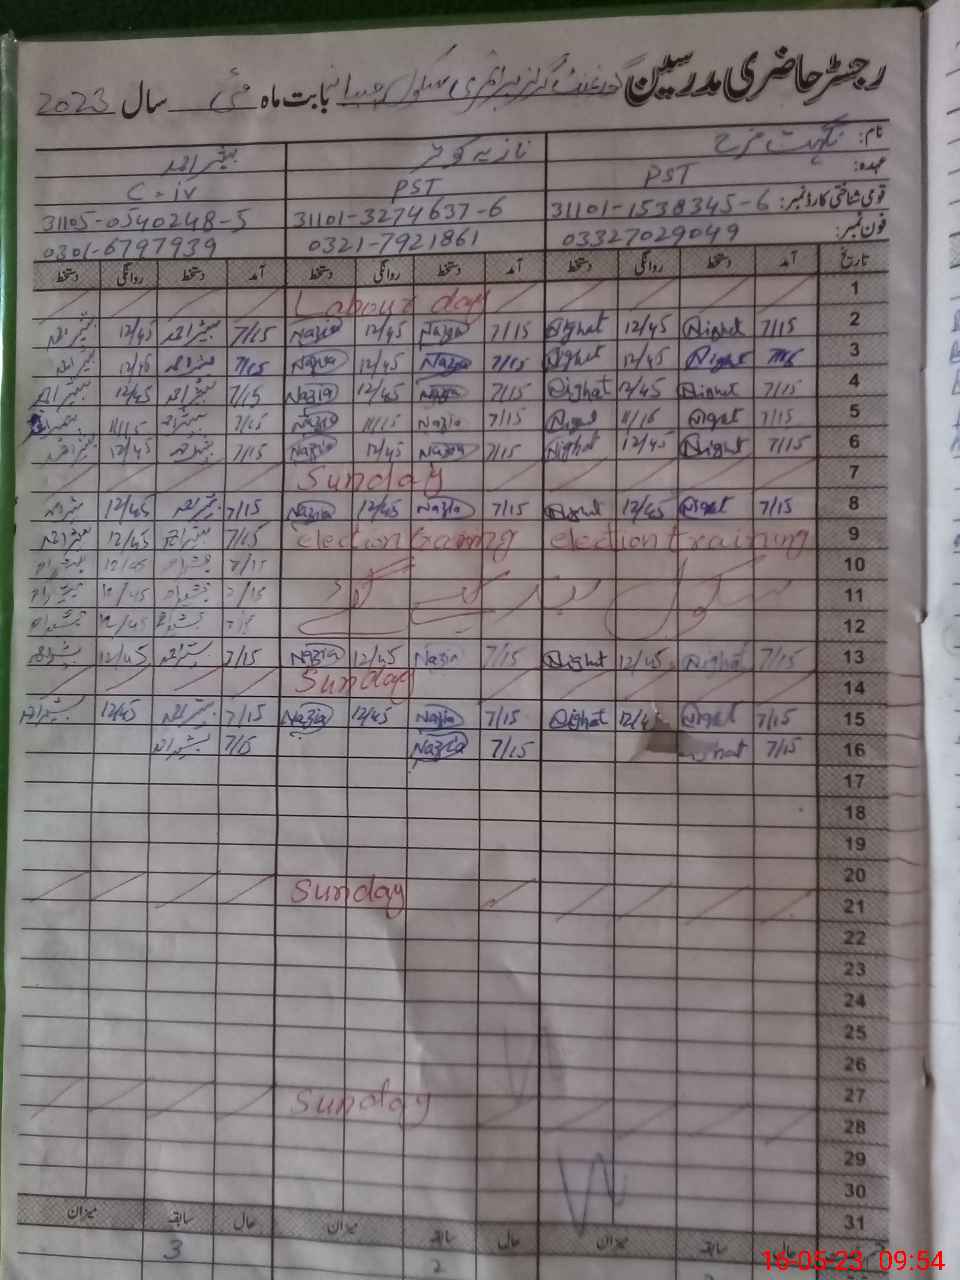 رجسٹر حاضری مدرسین گورنمنٹ گرلز پرائمری سکول بابت ماہ مئی سال 2023
نام: نگہت فرح نازیہ کوثر بشیر احمد
عہدہ: PST PST C-iv
قومی شناختی کارڈ نمبر: 31101-1538345-6 31101-3274637-6 31105-0540248-5
فون نمبر: 03327029049 0321-7921861 0301-6797939
تاریخ آمد دستخط روانگی دستخط آمد دستخط روانگی دستخط آمد دستخط روانگی دستخط
1 Labour day
2 7/15 Nighat 12/45 Nighat 7/15 Nazia 12/45 Nazia 7/15 بشیر احمد 12/45 بشیر احمد
3 Nighat 12/45 Nighat 7/15 Nazia 12/45 Nazia 7/15 بشیر احمد 12/45 بشیر احمد
4 7/15 Nighat 12/45 Nighat 7/15 Nazia 12/45 Nazia 7/15 بشیر احمد 12/45 بشیر احمد
5 7/15 Nighat 11/15 Nighat 7/15 Nazia 11/15 Nazia 7/15 بشیر احمد 11/15
6 7/15 Nighat 12/45 Nighat 7/15 Nazia 12/45 Nazia 7/15 بشیر احمد 12/45 بشیر احمد
7 Sunday
8 7/15 Nighat 12/45 Nighat 7/15 Nazia 12/45 Nazia 7/15 بشیر احمد 12/45 بشیر احمد
9 election training election training 7/15 بشیر احمد 12/45 بشیر احمد
10 7/15 بشیر احمد 12/45 بشیر احمد
11 7/15 بشیر احمد 12/45 بشیر احمد
12 بشیر احمد 12/45 بشیر احمد
13 7/15 Nighat 12/45 Nighat 7/15 Nazia 12/45 Nazia 7/15 بشیر احمد 12/45 بشیر احمد
14 Sunday
15 7/15 Nighat 12/4 Nighat 7/15 Nazia 12/45 Nazia 7/15 بشیر احمد 12/45 بشیر احمد
16 7/15 ghat 7/15 Nazia 7/15 بشیر احمد
17
18
19
20
21 Sunday
22
23
24
25
26
27
28 Sunday
29
30
31
حال سابقہ میزان حال سابقہ میزان حال سابقہ میزان
2 3
16-05-23 09:54